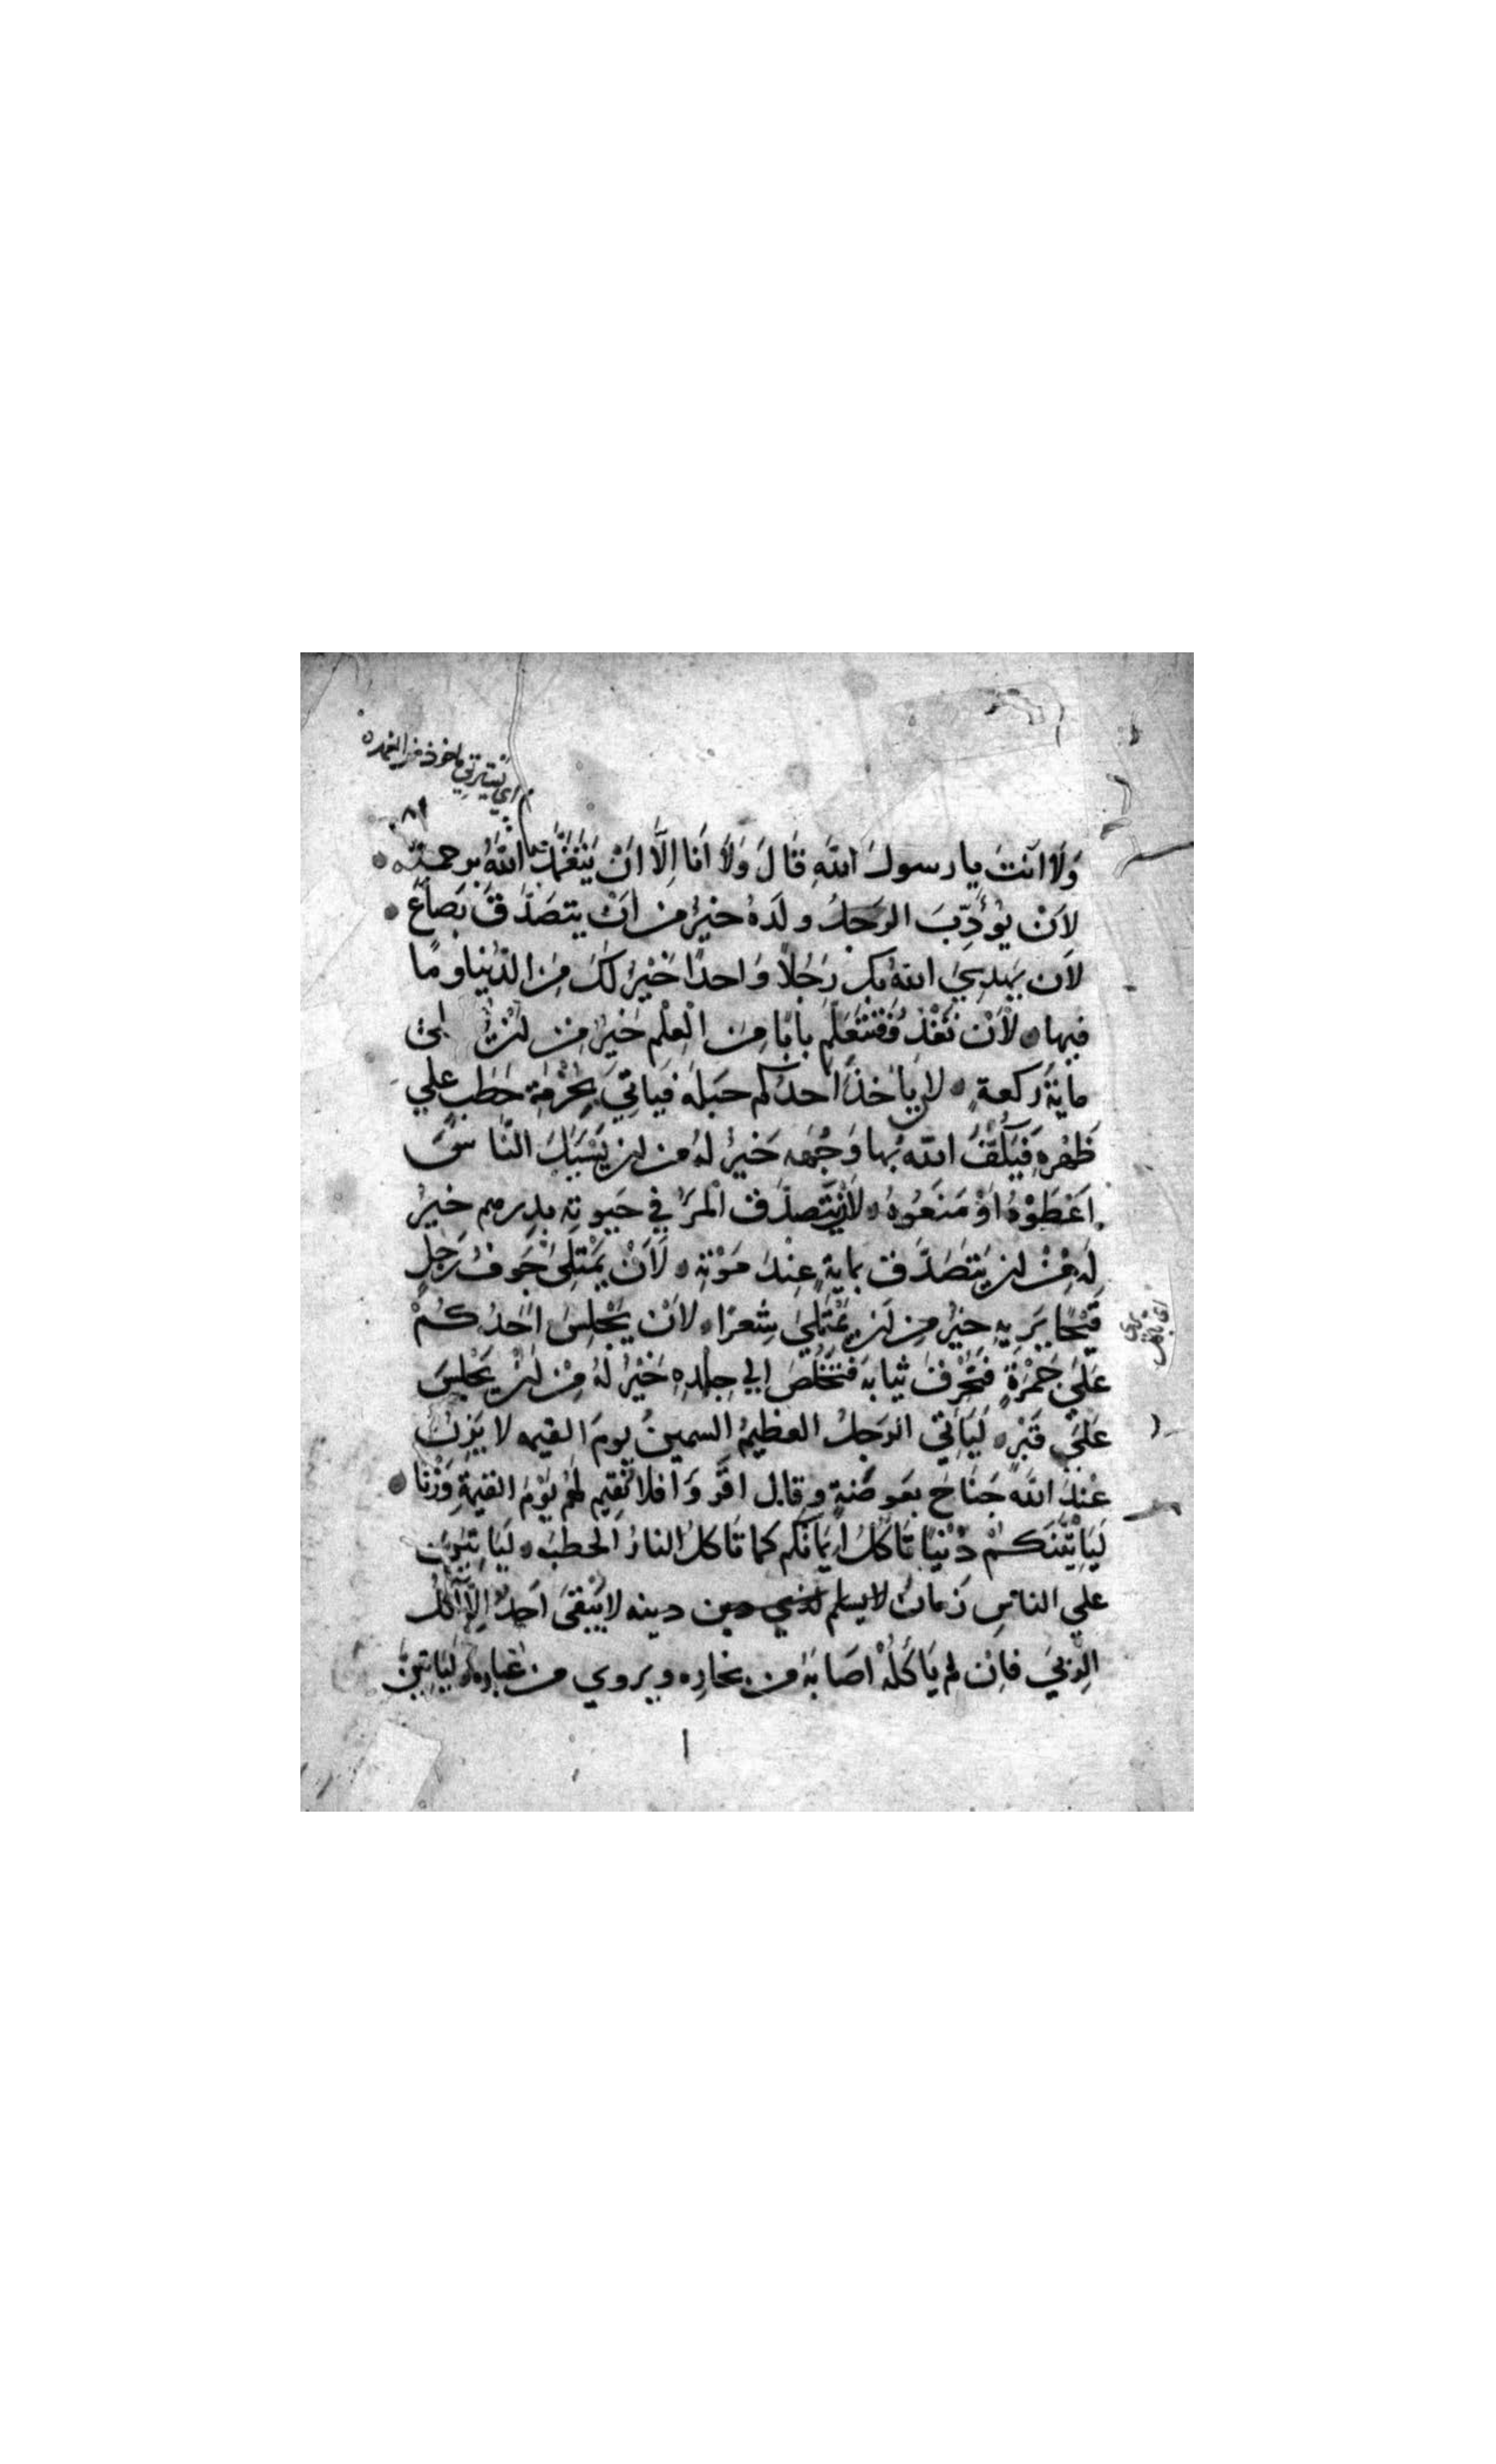 اي يستترني ماخوذ من الغمده
وَلَا اَنتَ يا رسولَ اللهِ قَالَ وَلَا اَنا اِلَّا اَنْ يَتَغَمَّدَنِي اللهُ برحمته
لَاَنْ يُؤَدِّبَ الرَجلُ ولَدهُ خيرٌ من اَنْ يتصَدَّقَ بصَاعٍ
لَاَن يهدِيَ اللهُ بكَ رَجُلاً وَاحدًا خَيْرٌ لكَ مِنَ الدُّنيا وما
فيها لَاَنْ تَغْدُ فَتَتَعَلَّم بابًا مِنَ الْعِلْم خَيْرٌ مِنْ اَنْ تُصَلِّيَ
ماية ركعةٍ لان يَاخذَ احدكم حَبلهُ فيَاتِيَ بِحُزْمَةِ حَطَبٍ علي
ظَهْرِهِ فَيَكُفَّ اللهُ بها وَجْهَه خَيرٌ لهُ من ان يَسْئَلَ النَّاسَ
اَعْطَوْهُ اَوْ مَنَعُوهُ لَاَنْ يَتَصدَّقَ الْمَرْءُ في حَيوتِهِ بدِرهم خيرٌ
لَه مِنْ ان يَتَصَدَّقَ بمايةٍ عِنْدَ مَوْتِهِ لَاَنْ يَمْتَلِئَ جَوفُ رَجلٍ
قَيْحًا يَرِيهِ خيرٌ مِن اَن يَمْتَلِئَ شِعرًا لَاَنْ يَجْلِسَ اَحَدُكُمْ
عَلَيَ جَمْرَةٍ فتُحْرِقَ ثيابهَ فتَخْلُصَ الي جِلْدِهِ خَيْرٌ لهُ مِنْ اَنْ يَجْلِسَ
عَلَيَ قَبْرٍ لَيَاْتِي الرجلُ العظيمُ السمينُ يومَ القيمه لا يَزِنُ
عِنْدَ اللهِ جَنَاحَ بعَوضَةٍ وقال اقْرَوَا فلا نُقِيم لهُمْ يَوْمَ القيمةِ وَزْنًا
لَيَاْتِيَنَّكُمْ دُنْيَا تَاكُلُ اِيمَانَكم كما تَاكلُ النارُ الحطبَ لَيَاتِيَنَّ
علي الناسِ زَمانٌ لا يسلم لذي دين دينه لا يَبْقَى اَحدٌ اِلَّا اَكَلَ
الرِّبيَ فاِنْ لم يَاكُلْهُ اصَابَهُ من بخارِه ويروي من غباره لَيَاتِيَنَّ